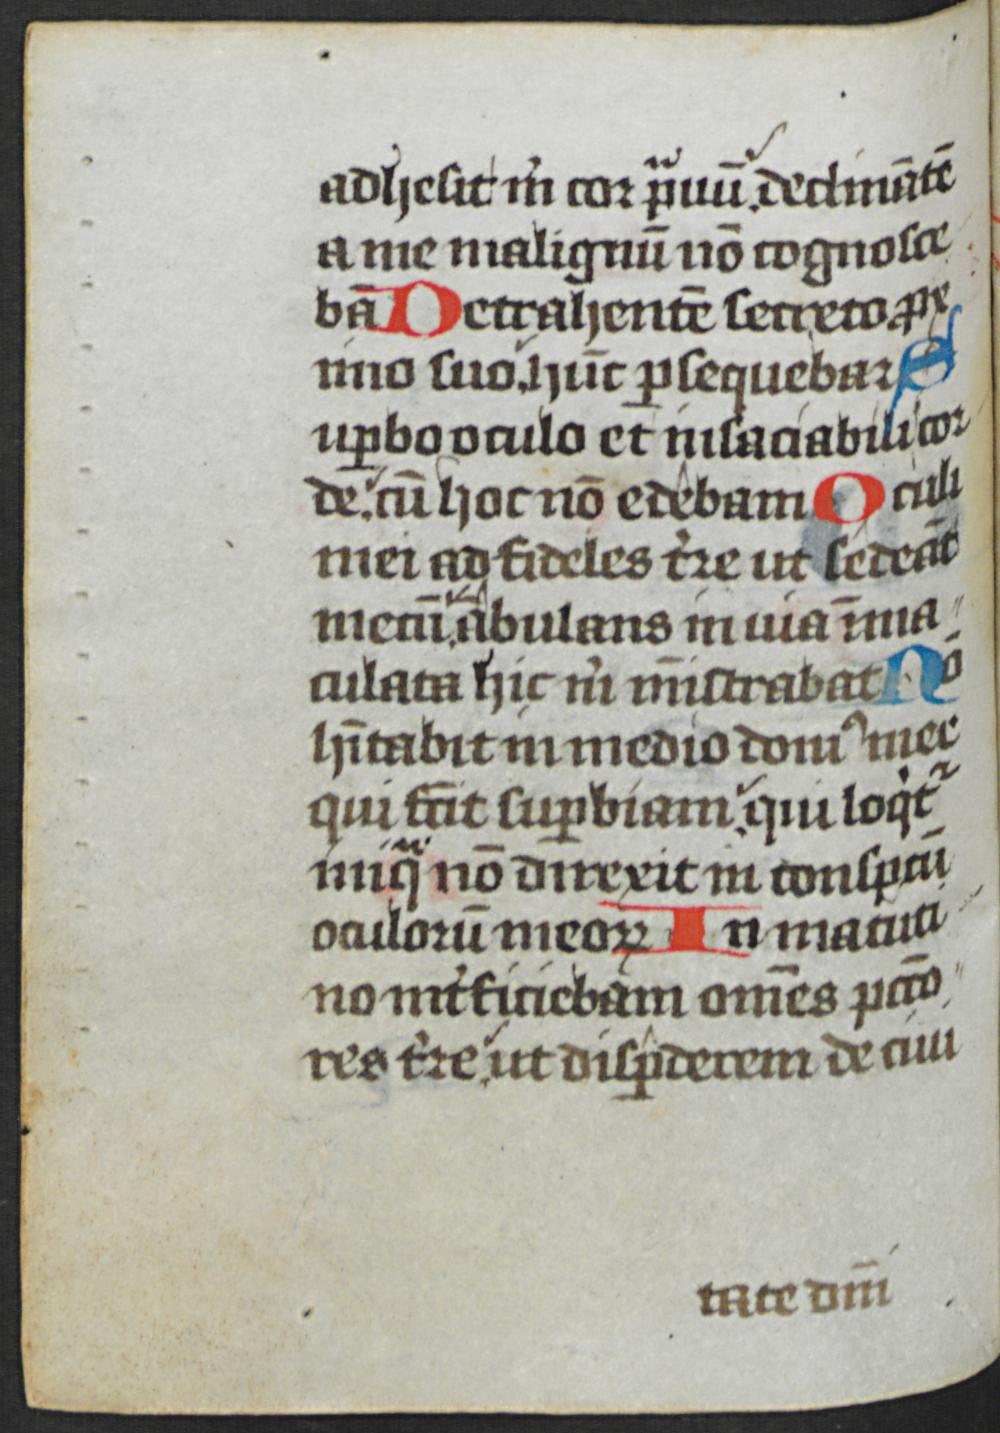 adhesit m̄ cor p̄uū. declinātē
a me malignū nō cognosce
bā Detrahentē secreto ꝓxi
mo suo. hūc ꝑsequebar S
uꝑbo oculo et insaciabili cor
de. cū hoc nō edebam Oculi
mei ad fideles t̄re ut sedeāt
mecū. ābulans in uia īma
culata hic m̄ m̄istrabat Nō
h̄itabit in medio domꝰ mee
qui fc̄it suꝑbiam. qui loqt̄
iniq̄ nō direxit in conspc̄u
oculorū meoꝝ In matuti
no int̄ficiebam om̄es pctō
res t̄re. ut disꝑderem de ciui
tate dm̄i